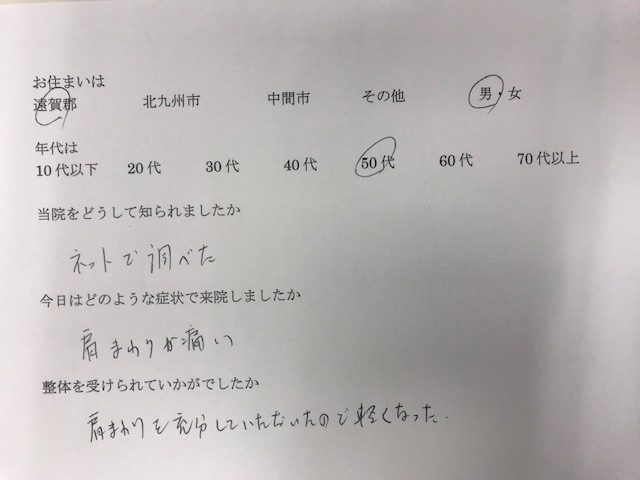 お住まいは
遠賀郡 北九州市 中間市 その他 男・女
年代は
10代以下 20代 30代 40代 50代 60代 70代以上
当院をどうして知られましたか
ネットで調べた
今日はどのような症状で来院しましたか
肩まわりが痛い
整体を受けられていかがでしたか
肩まわりを充分していただいたので軽くなった.